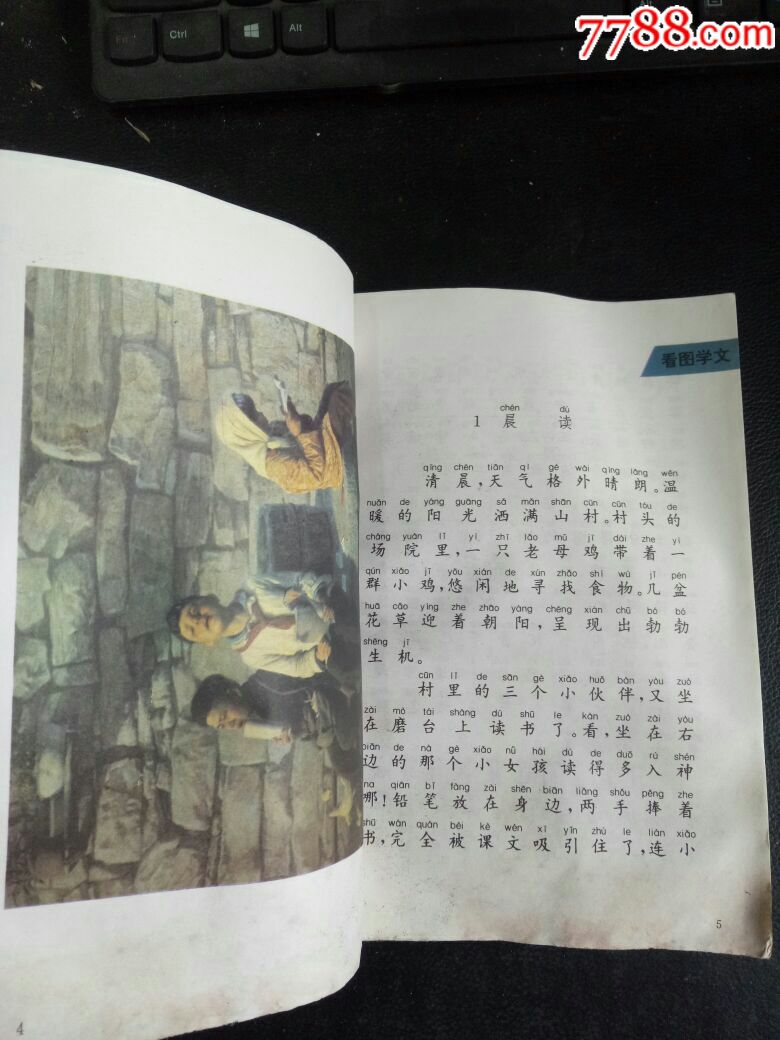 Fn
Ctrl
Alt
7788.com
看图学文
chén dú
1 晨 读
qīng chén tiān qì gé wài qíng lǎng wēn
清晨,天气格外晴朗。温
nuǎn de yáng guāng sǎ mǎn shān cūn cūn tóu de
暖的阳光洒满山村。村头的
cháng yuàn lǐ yì zhī lǎo mǔ jī dài zhe yì
场院里,一只老母鸡带着一
qún xiǎo jī yōu xián de xún zhǎo shí wù jǐ pén
群小鸡,悠闲地寻找食物。几盆
huā cǎo yíng zhe zhāo yáng chéng xiàn chū bó bó
花草迎着朝阳,呈现出勃勃
shēng jī
生机。
cūn lǐ de sān gè xiǎo huǒ bàn yòu zuò
村里的三个小伙伴,又坐
zài mò tái shàng dú shū le kàn zuò zài yòu
在磨台上读书了。看,坐在右
biān de nà gè xiǎo nǚ hái dú de duō rù shén
边的那个小女孩读得多入神
na qiān bǐ fàng zài shēn biān liǎng shǒu pěng zhe
哪!铅笔放在身边,两手捧着
shū wán quán bèi kè wén xī yǐn zhù le lián xiǎo
书,完全被课文吸引住了,连小
5
4